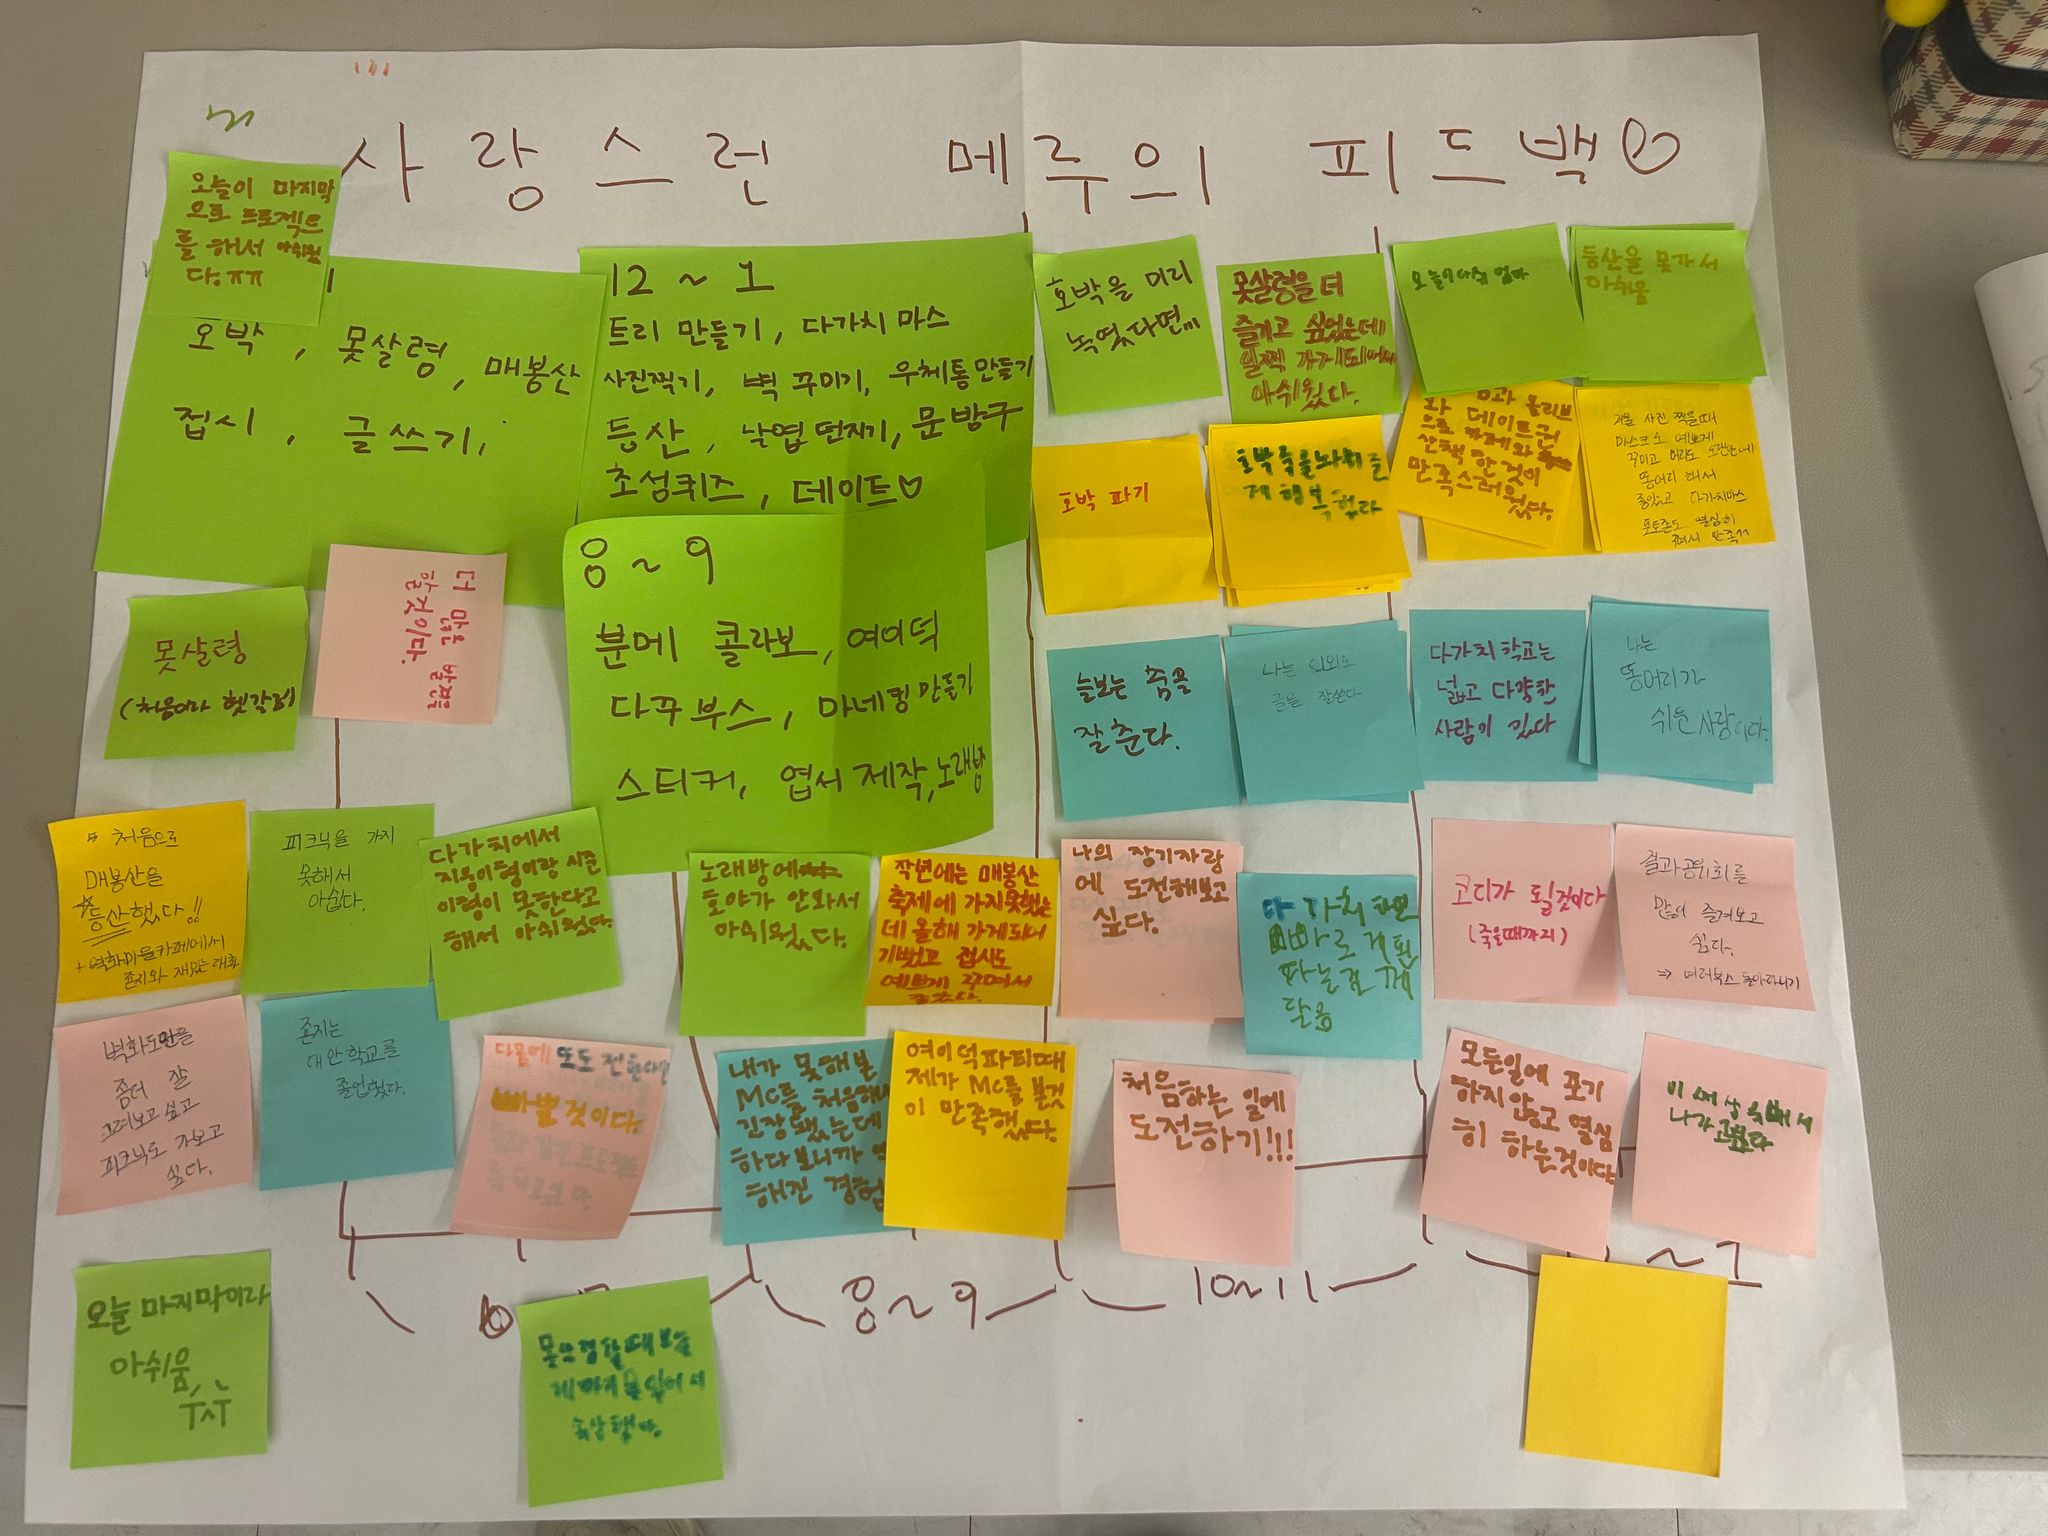 사랑스런 메루의 피드백♡
오늘이 마지막
으로 프로젝트
를 해서 아쉬웠
다.ㅠㅠ
호박, 못살령, 매봉산
접시, 글쓰기,
12~1
트리 만들기, 다가치 마스
사진찍기, 벽 꾸미기, 우체통만들기
등산, 낙엽 던지기, 문방구
초성퀴즈, 데이트♡
8~9
분메 콜라보, 여이덕
다꾸 부스, 마네킹 만들기
스티커, 엽서 제작, 노래방
호박을 미리
녹였다면!!!
못살령을 더
즐기고 싶었는데
일찍 가게되어서
아쉬웠다.
등산을 못가서
아쉬움
호박 파기
와 데이트권
으로 카페와
산책 한 것이
만족스러웠다.
겨울 사진 찍을때
마스크도 예쁘게
똥머리 해서
좋았고 다가치마스
포토존도 열심히
늘보는 춤을
잘춘다.
나는 의외로
글을 잘쓴다
다가치학교는
넓고 다양한
사람이 있다
나는
똥머리가
쉬운 사람이다.
못살령
(처음이라 헷갈려)
더 많은
것이다.
* 처음으로
매봉산을
등산했다!!
+벽화마을카페에서
존지와 재밌는 대화
피크닉을 가지
못해서
아쉽다.
다가치에서
지웅이형이랑 시준
이형이 못한다고
해서 아쉬웠다.
노래방에
호야가 안와서
아쉬웠다.
작년에는 매봉산
축제에 가지못했는
데 올해 가게되서
기뻤고 접시도
예쁘게 꾸며서
나의 장기자랑
에 도전해보고
싶다.
다가치 하면
바로 계획
짜는걸 깨
달음
코디가 될것이다
(죽을때까지)
결과공유회를
많이 즐겨보고
싶다.
⇒ 여러부스 돌아다니기
벽화도안을
좀더 잘
그려보고 싶고
피크닉도 가보고
싶다.
존지는
대안학교를
졸업했다.
다음에 또 도전한다면
빠쁠것이다.
내가 못해본
MC를 처음해서
긴장됐는데
하다보니까
해진 경험
여이덕파티때
제가 MC를 본것
이 만족했다.
처음하는 일에
도전하기!!!
모든일에 포기
하지 않고 열심
히 하는것이다
8~9
10~11
오늘 마지막이라
아쉬움,